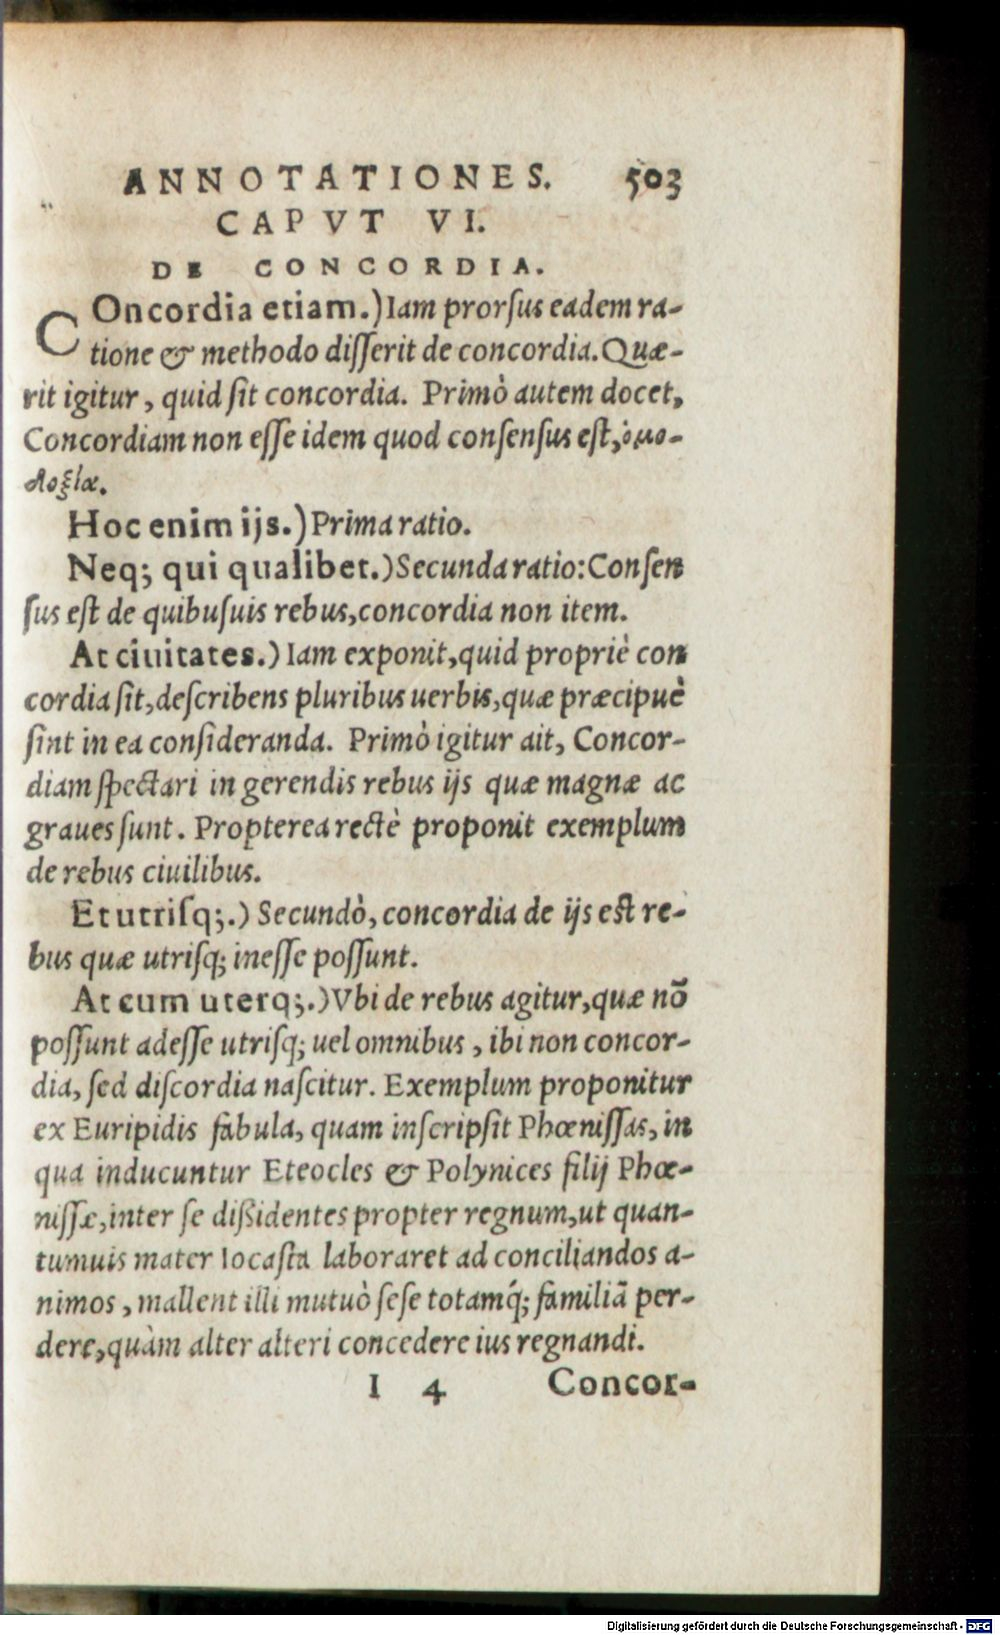 ANNOTATIONES. 503
CAPVT VI.
DE CONCORDIA.
COncordia etiam.) Iam prorſus eadem ra-
tione & methodo diſſerit de concordia. Quæ-
rit igitur, quid ſit concordia. Primò autem docet,
Concordiam non eſſe idem quod conſenſus eſt, ὁμο-
δοξίαε.
Hoc enim ijs.) Prima ratio.
Neq; qui qualibet.) Secunda ratio: Conſen
ſus eſt de quibuſuis rebus, concordia non item.
At ciuitates.) Iam exponit, quid propriè con
cordia ſit, deſcribens pluribus uerbis, quæ præcipuè
ſint in ea conſideranda. Primò igitur ait, Concor-
diam ſpectari in gerendis rebus ijs quæ magnæ ac
graues ſunt. Propterea rectè proponit exemplum
de rebus ciuilibus.
Et utriſq;.) Secundò, concordia de ijs eſt re-
bus quæ utriſq; ineſſe poſſunt.
At cum uterq;.) Vbi de rebus agitur, quæ nō
poſſunt adeſſe utriſq; uel omnibus, ibi non concor-
dia, ſed diſcordia naſcitur. Exemplum proponitur
ex Euripidis fabula, quam inſcripſit Phœniſſas, in
qua inducuntur Eteocles & Polynices filij Phœ-
niſſæ, inter ſe dißidentes propter regnum, ut quan-
tumuis mater Iocaſta laboraret ad conciliandos a-
nimos, mallent illi mutuò ſeſe totamq́; familiā per-
dere, quàm alter alteri concedere ius regnandi.
I 4 Concor-
Digitalisierung gefördert durch die Deutsche Forschungsgemeinschaft - DFG